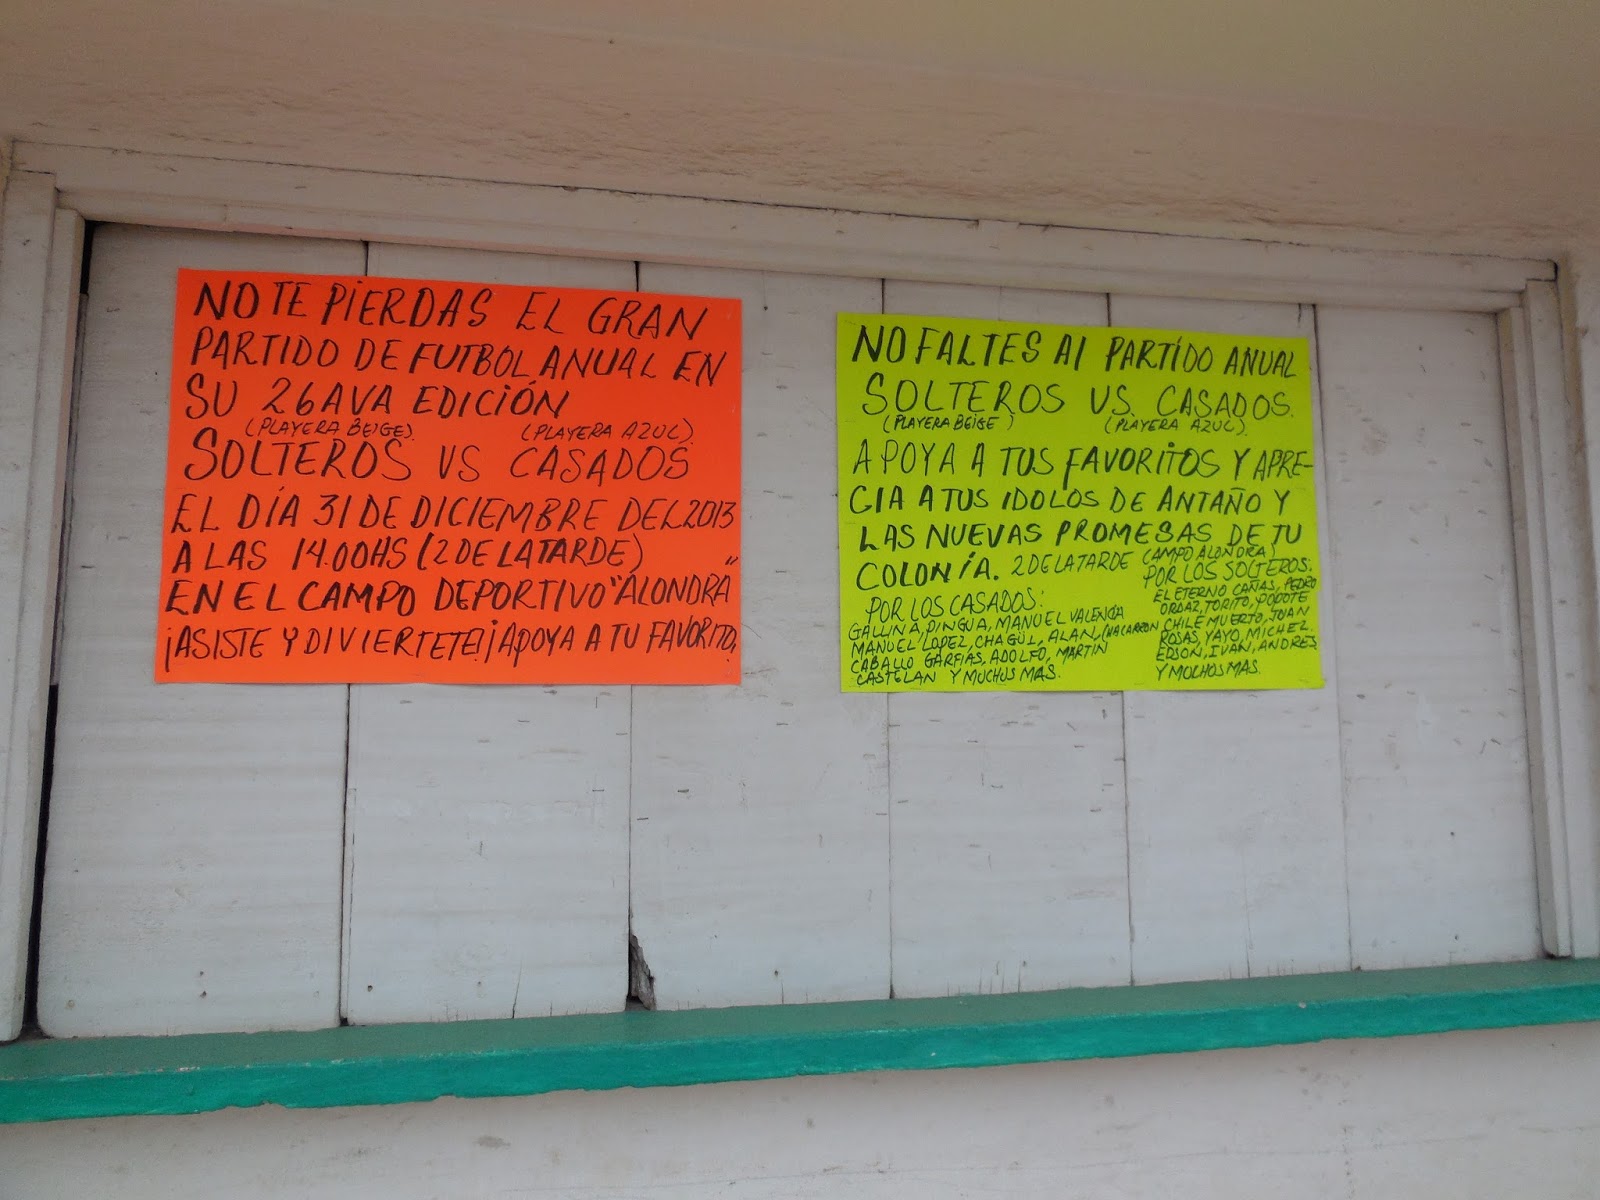 NO TE PIERDAS EL GRAN
PARTIDO DE FUTBOL ANUAL EN
SU 26AVA EDICIÓN
(PLAYERA BEIGE). (PLAYERA AZUL).
SOLTEROS VS CASADOS
EL DÍA 31 DE DICIEMBRE DEL 2013
A LAS 14.00HS (2 DE LA TARDE)
EN EL CAMPO DEPORTIVO "ALONDRA"
¡ASISTE Y DIVIERTETE! ¡APOYA A TU FAVORITO,
NO FALTES Al PARTIDO ANUAL
SOLTEROS VS. CASADOS.
(PLAYERA BEIGE) (PLAYERA AZUL).
APOYA A TUS FAVORITOS Y APRE-
CIA A TUS IDOLOS DE ANTAÑO Y
LAS NUEVAS PROMESAS DE TU
COLONÍA. 2 DE LA TARDE (CAMPO ALONDRA)
POR LOS CASADOS:
GALLINA, PINGUA, MANUEL VALENCIA
MANUEL LOPEZ, CHAGÜL, ALAN, (MACARRON
CABALLO GARFIAS, ADOLFO, MARTIN
CASTELAN Y MUCHOS MAS.
POR LOS SOLTEROS:
EL ETERNO CAÑAS, PEDRO
ORDAZ, TORITO, POPOTE
CHILE MUERTO, JUAN
ROSAS, YAYO, MICHEL
EDSON, IVAN, ANDRES
Y MUCHOS MAS.